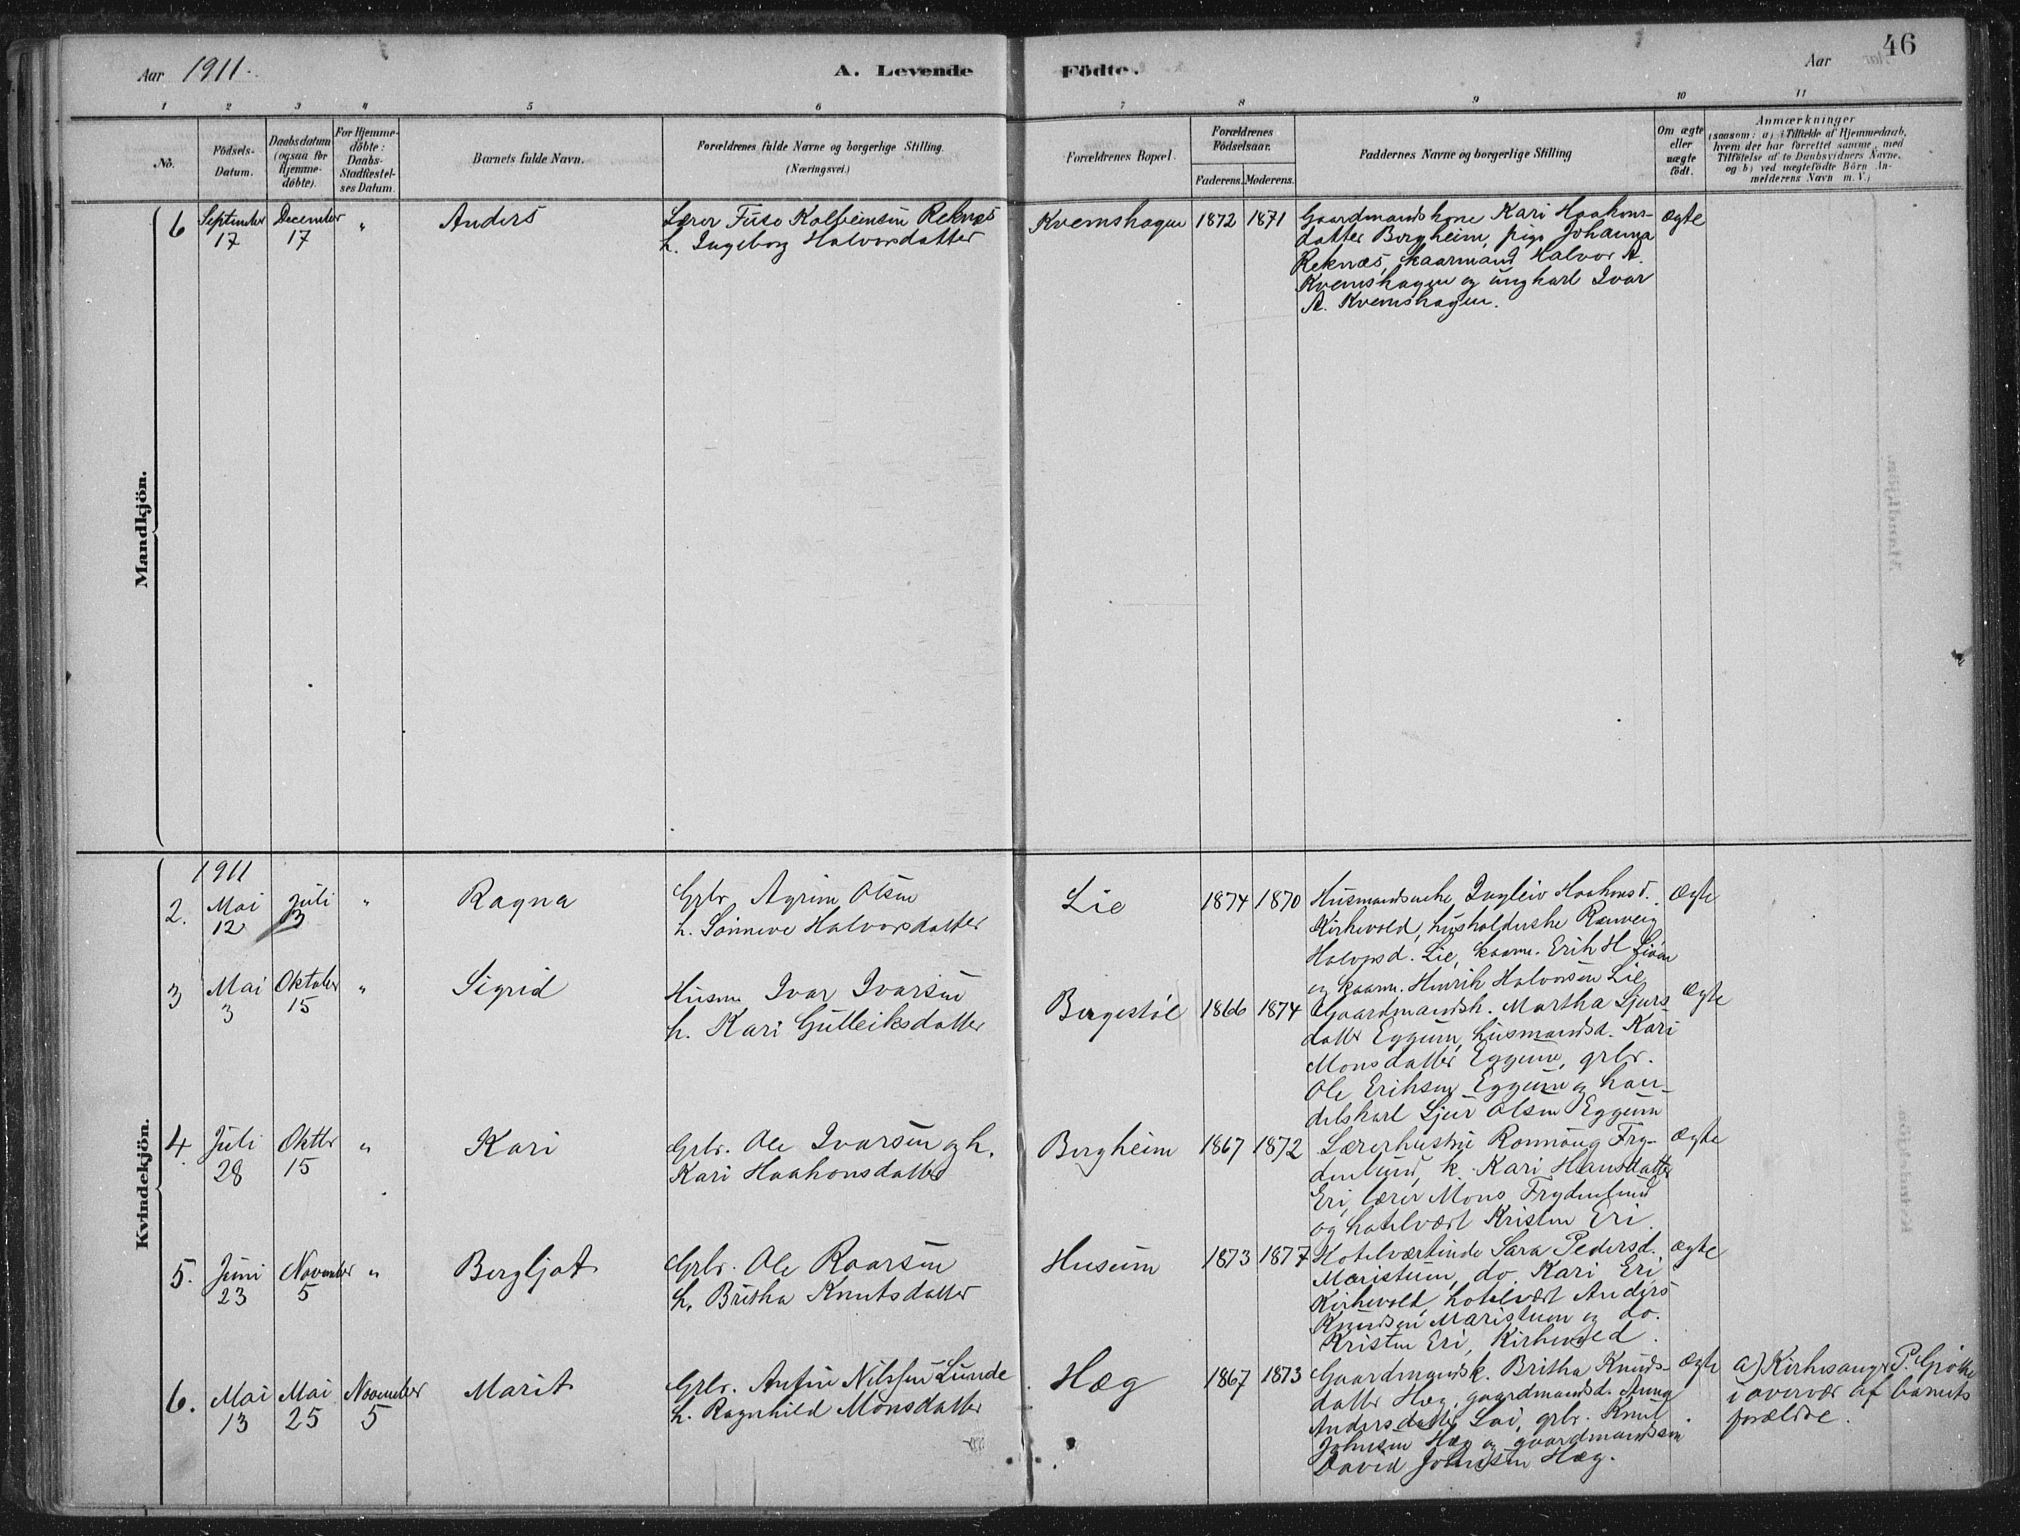 46
Aar 1911.
A. Levende
Födte.
Aar
1 2 3 4 5 6 7 8 9 10 11
No.
Födsels-
Datum.
Daabsdatum
(ogsaa for
Hjemme-
döbte).
For Hjemme-
döbte:
Daabs-
Stadfæstel-
ses Datum.
Barnets fulde Navn.
Forældrenes fulde Navne og borgerlige Stilling.
(Næringsvei.)
Forældrenes Bopæl.
Forældrenes
Födselsaar.
Faderens. Moderens.
Faddernes Navne og borgerlige Stilling
Om ægte
eller
uægte
födt.
Anmærkninger
(saasom: a) i Tilfælde af Hjemmedaab,
hvem der har forrettet samme, med
Tilföielse af to Daabsvidners Navne,
og b) ved uægtefödte Börn An-
melderens Navn m. V.)
Mandkjön.
6
September
17
December
17
"
Anders
Lærer Kolbeinsen Reknæs
h. Ingeborg Halvorsdatter
Kvemshagen
1872 1871
Gaardmandskone Kari Haakons-
datter Bergheim, pige Johanna
Reknæs, kaarmand Halvor A.
Kvemshagen og ungkarl Ivar
A. Kvemshagen.
ægte
Kvindekjön.
1911
2.
Mai
12
Juli
"
Ragna
Grbr. Agrim Olsen
h. Sönneve Halvorsdatter
Lie
1874 1870
Husmandsenke Ingleiv Haakonsd.
Kirkevold, husholderske Ranveig
Halvorsd. Lie, kaarm. Erik H
og kaarm. Henrik Halvorsen Lie.
ægte
3
Mai
3
Oktober
15
"
Sigrid
Husm. Ivar Ivarsen
h. Kari Gulleiksdatter
Bergestöl
1866 1874
Gaardmandsk. Martha Sjurs-
datter Eggum, husmandsd. Kari
Monsdatter Eggum, grbr.
Ole Eriksen Eggum og han-
delskarl Sjur Olsen Eggum
ægte
4.
Juli
28
Oktbr
15
"
Kari
Grbr. Ole Ivarsen og h.
Kari Haakonsdatter
Bergheim
1867 1872
Lærerhustru Ronnaug Fry-
denlund, k. Kari Hansdatter
Eri, lærer Mons Frydenlund
og hotelvært Kristen Eri.
ægte
5.
Juni
23
November
5
"
Bergljot
Grbr. Ole Roarsen
h. Britha Knutsdatter
Husum
1873 1877
Hotelværtinde Sara Pedersd.
Maristuen, do. Kari Eri,
Kirkevold, hotelvært Anders
Knudsen Maristuen og do.
Kristen Eri, Kirkevold.
ægte
6.
Mai
13
Mai
25
November
5
Marit
Grbr. Anfin Nilssen Lunde
h. Ragnhild Monsdatter
Hæg
1867 1873
Gaardmandsk. Britha Knuds-
datter Hæg, gaardmandsd. Anna
Andersdatter Lai, grbr. Knut
Johnsen Hæg og gaardmandssön
David Johnsen Hæg.
ægte
a) Kirkesanger P.
i overvær af barnets
forældre.